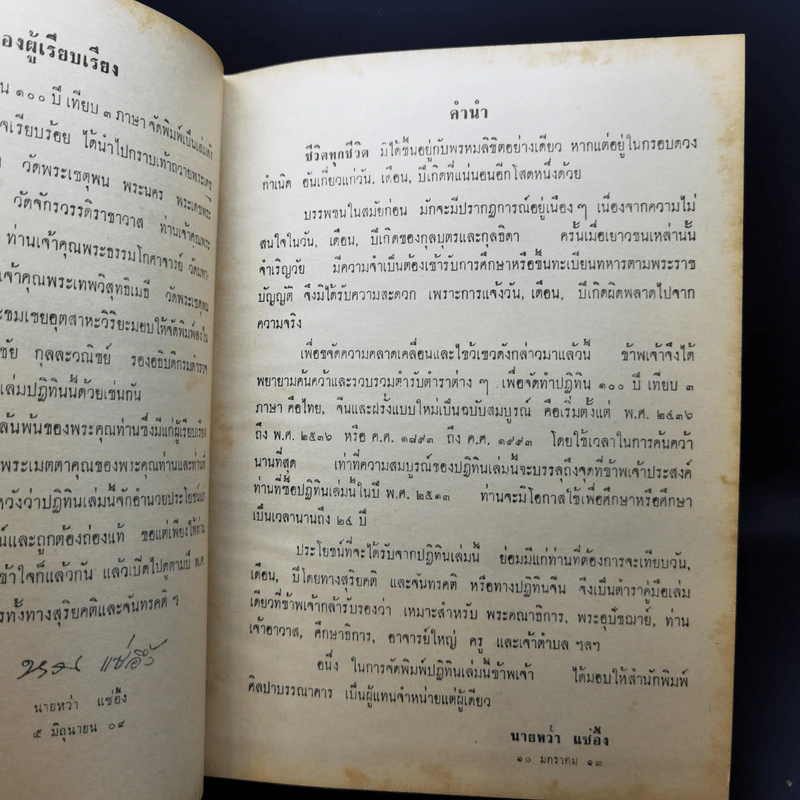 องผู้เรียบเรียง
น ๑๐๐ ปี เทียบ ๓ ภาษา จัดพิมพ์เป็นเล่มหนัง
จเรียบร้อย ได้นำไปกราบเท้าถวายพระเดช
วัดพระเชตุพน พระนคร พระเดชพระ
วัดจักรวรรดิราชาวาส ท่านเจ้าคุณพระ
ท่านเจ้าคุณพระธรรมโกศาจารย์
เจ้าคุณพระเทพวิสุทธิเมธี วัดพระเชตุพน
ะชมเชยอุตสาหะวิริยะมอบให้จัดพิมพ์
ชัย กุลละวณิชย์ รองอธิบดีกรมตำรวจ
เล่มปฏิทินนี้ด้วยเช่นกัน
ล้นพ้นของพระคุณท่านซึ่งมีแก่ผู้เรียบเรียง
พระเมตตาคุณของพระคุณท่านและท่านที่
หวังว่าปฏิทินเล่มนี้จักอำนวยประโยชน์แก่
น์และถูกต้องถ่องแท้ ขอแต่เพียงให้ท่าน
ข้าใจก็แล้วกัน แล้วเปิดไปดูตามปี พ.ศ.
รทั้งทางสุริยคติและจันทรคติ ฯ
นายหว่า แซ่อึ้ง
๕ มิถุนายน ๐๙
คำนำ
ชีวิตทุกชีวิต มิได้ขึ้นอยู่กับพรหมลิขิตอย่างเดียว หากแต่อยู่ในกรอบดวง
กำเนิด อันเกี่ยวแก่วัน, เดือน, ปีเกิดที่แน่นอนอีกโสดหนึ่งด้วย
บรรพชนในสมัยก่อน มักจะมีปรากฏการณ์อยู่เนือง ๆ เนื่องจากความไม่
สนใจในวัน, เดือน, ปีเกิดของกุลบุตรและกุลธิดา ครั้นเมื่อเยาวชนเหล่านั้น
จำเริญวัย มีความจำเป็นต้องเข้ารับการศึกษาหรือขึ้นทะเบียนทหารตามพระราช
บัญญัติ จึงมิได้รับความสะดวก เพราะการแจ้งวัน, เดือน, ปีเกิดผิดพลาดไปจาก
ความจริง
เพื่อขจัดความคลาดเคลื่อนและไขว้เขวดังกล่าวมาแล้วนี้ ข้าพเจ้าจึงได้
พยายามค้นคว้าและรวบรวมตำรับตำราต่าง ๆ เพื่อจัดทำปฏิทิน ๑๐๐ ปี เทียบ ๓
ภาษา คือไทย, จีนและฝรั่งแบบใหม่เป็นฉบับสมบูรณ์ คือเริ่มตั้งแต่ พ.ศ. ๒๔๓๖
ถึง พ.ศ. ๒๕๓๖ หรือ ค.ศ. ๑๘๙๓ ถึง ค.ศ. ๑๙๙๓ โดยใช้เวลาในการค้นคว้า
นานที่สุด เท่าที่ความสมบูรณ์ของปฏิทินเล่มนี้จะบรรลุถึงจุดที่ข้าพเจ้าประสงค์
ท่านที่ซื้อปฏิทินเล่มนี้ในปี พ.ศ. ๒๕๑๓ ท่านจะมีโอกาสใช้เพื่อศึกษาหรือศึกษา
เป็นเวลานานถึง ๒๔ ปี
ประโยชน์ที่จะได้รับจากปฏิทินเล่มนี้ ย่อมมีแก่ท่านที่ต้องการจะเทียบวัน,
เดือน, ปีโดยทางสุริยคติ และจันทรคติ หรือทางปฏิทินจีน จึงเป็นตำราคู่มือเล่ม
เดียวที่ข้าพเจ้ากล้ารับรองว่า เหมาะสำหรับ พระคณาธิการ, พระอุปัชฌาย์, ท่าน
เจ้าอาวาส, ศึกษาธิการ, อาจารย์ใหญ่ ครู และเจ้าตำบล ฯลฯ
อนึ่ง ในการจัดพิมพ์ปฏิทินเล่มนี้ข้าพเจ้า ได้มอบให้สำนักพิมพ์
ศิลปาบรรณาคาร เป็นผู้แทนจำหน่ายแต่ผู้เดียว
นายหว่า แซ่อึ้ง
๑๐ มกราคม ๑๓